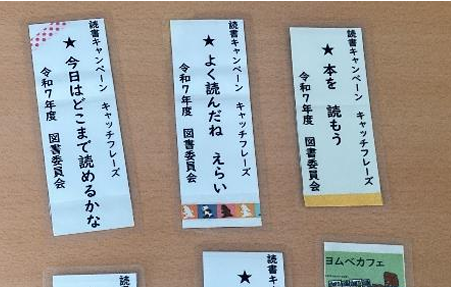 読書キャンペーン キャッチフレーズ
★ 今日はどこまで読めるかな
令和7年度 図書委員会
読書キャンペーン キャッチフレーズ
★ よく読んだね えらい
令和7年度 図書委員会
読書キャンペーン キャッチフレーズ
★ 本を 読もう
令和7年度 図書委員会
読
読書
★
ヨムベカフェ